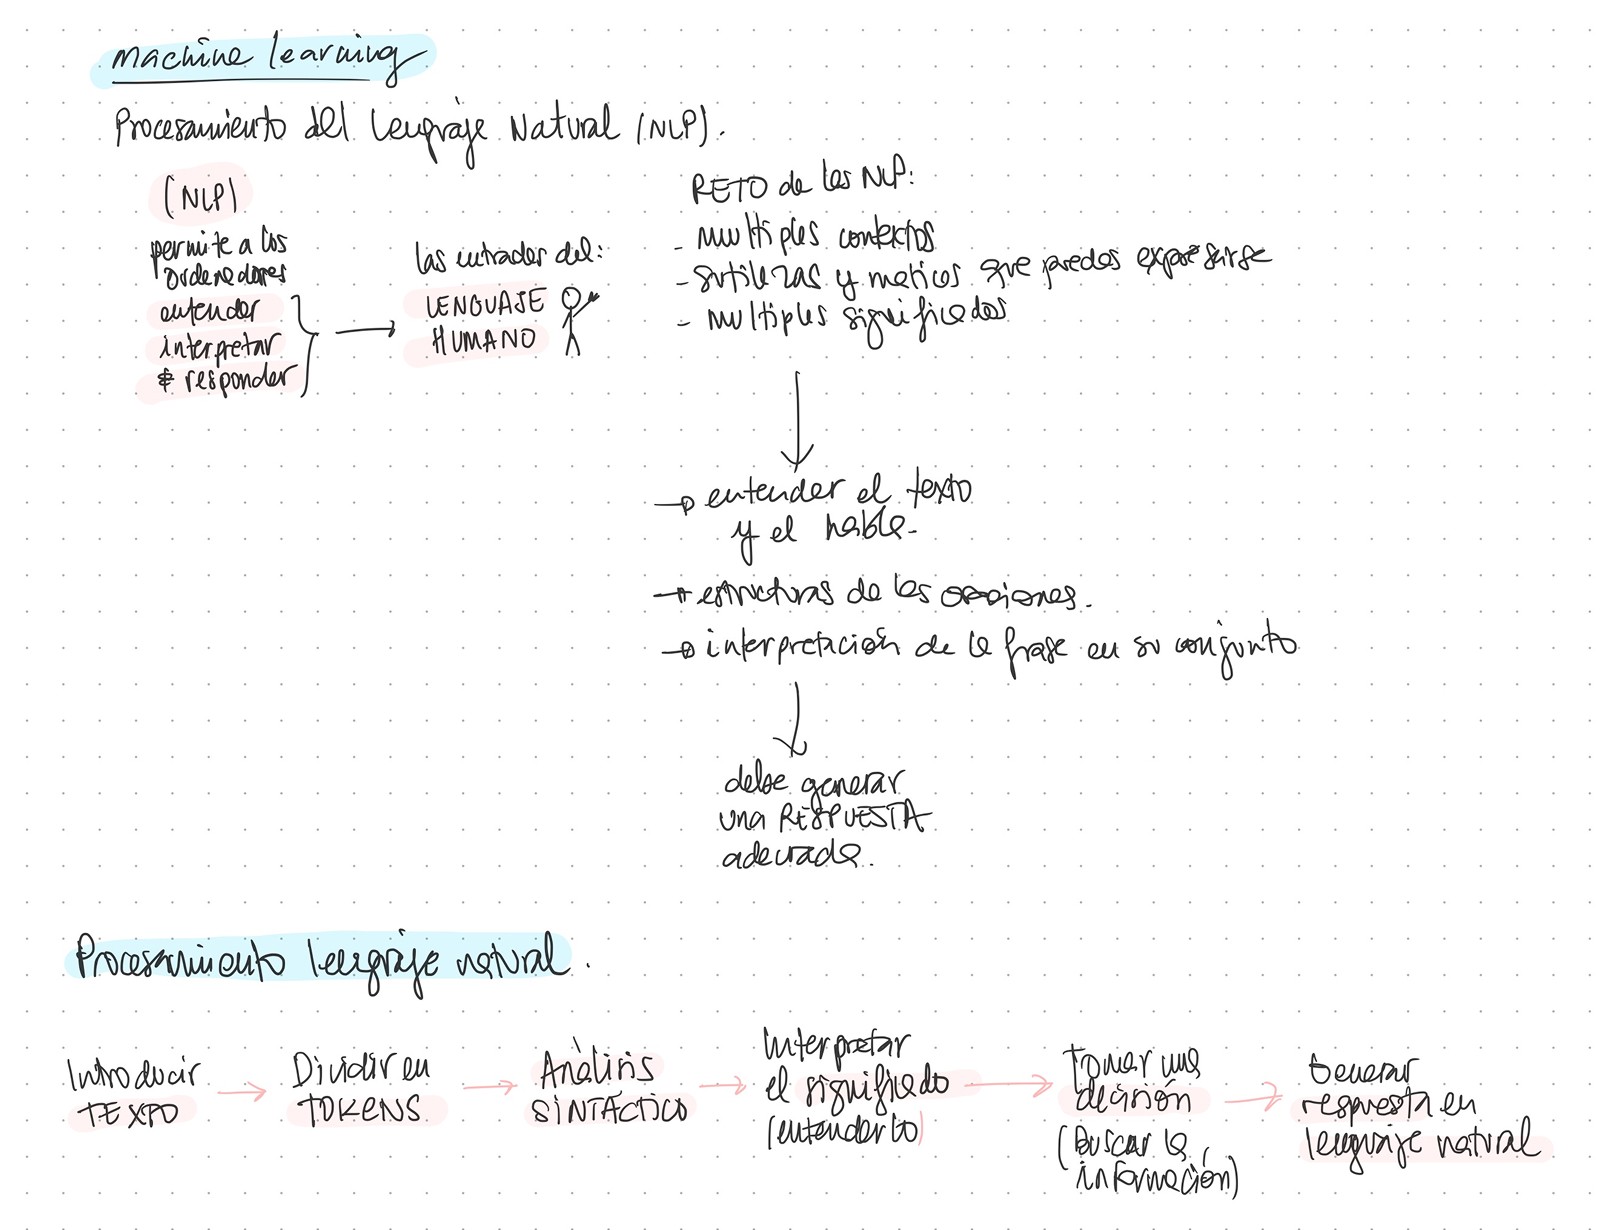 machine learning
Procesamiento del Lenguaje Natural (NLP).
(NLP)
permite a los
ordenadores
entender
interpretar
& responder
las entradas del:
LENGUAJE
HUMANO
RETO de los NLP:
- multiples contextos
- sutilezas y matices que puedas expresarse
- multiples significados
→ entender el texto
y el habla.
→ estructuras de las oraciones.
→ interpretación de la frase en su conjunto
debe generar
una RESPUESTA
adecuada.
Procesamiento lenguaje natural.
Introducir
TEXTO
→
Dividir en
TOKENS
→
Análisis
SINTÁCTICO
→
Interpretar
el significado
(entenderlo)
→
Tomar una
decisión
(Buscar la
información)
→
Generar
respuesta en
lenguaje natural